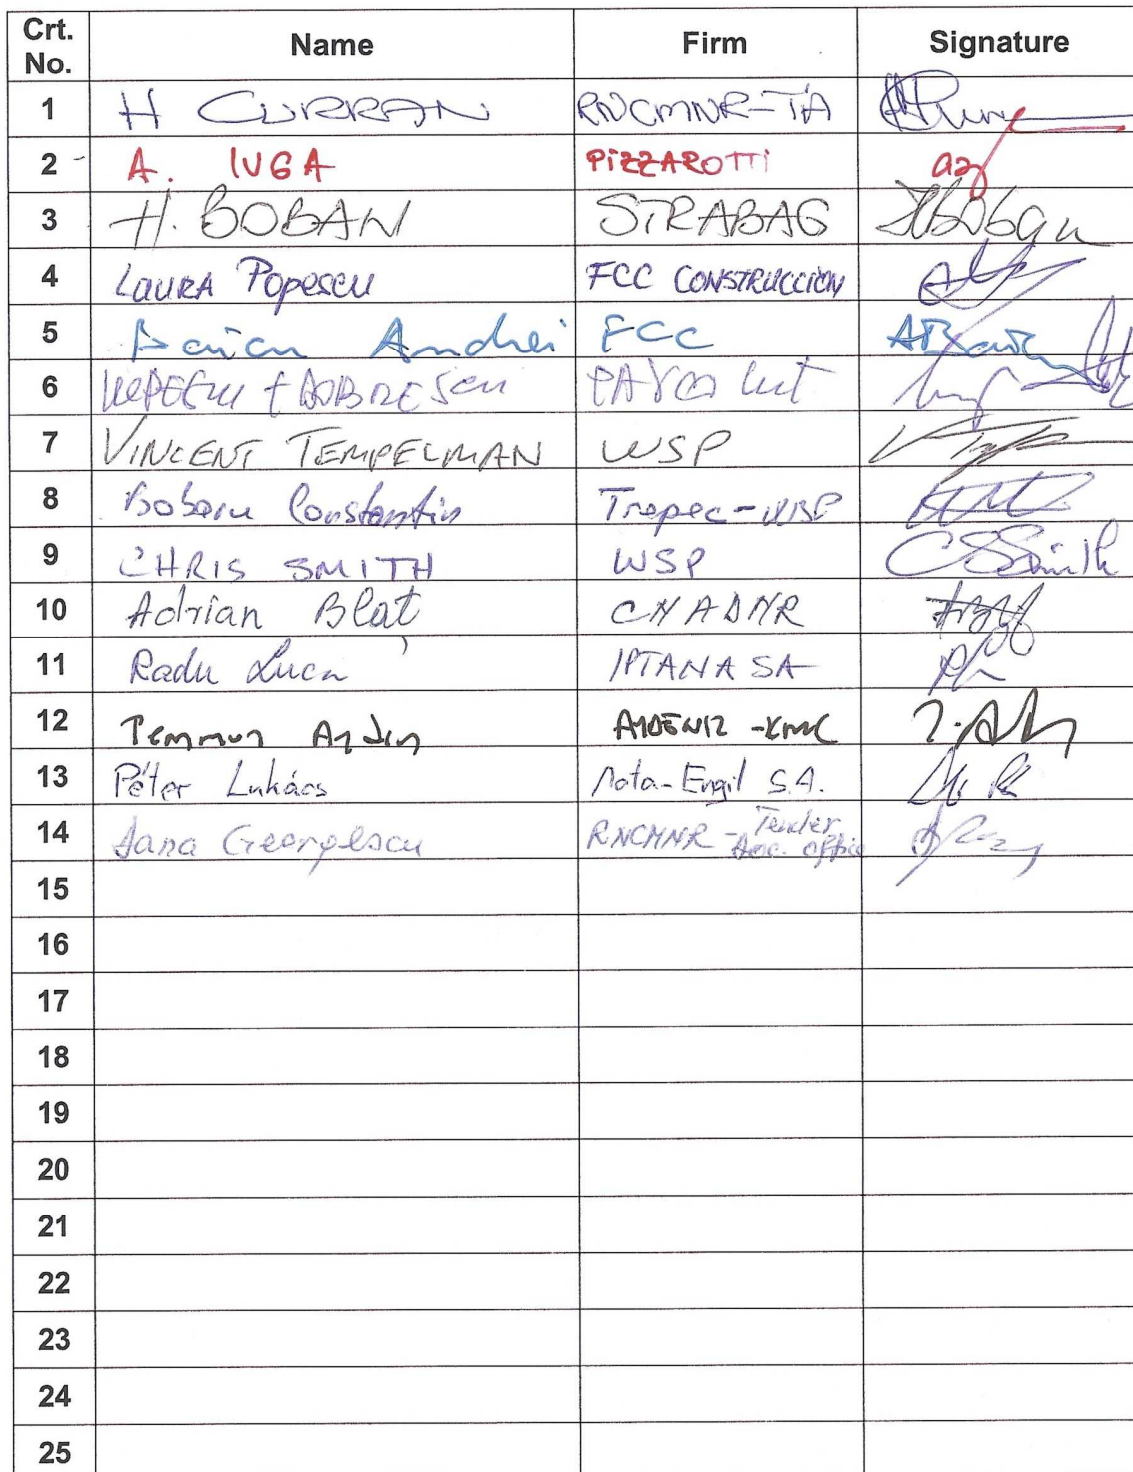 Crt. No. Name Firm Signature
1 H CURRAN RNCMNR-TA
2 A. IUGA PIZZAROTTI
3 H. BOBAN STRABAG HBoban
4 LAURA Popescu FCC CONSTRUCCION
5 Andrei FCC
6
7 VINCENT TEMPELMAN WSP
8 Constantin
9 CHRIS SMITH WSP CSSmith
10 Adrian Blat CNADNR
11 Radu Luca IPTANA SA
12
13 Péter Lukács Mota-Engil S.A.
14 Georgescu RNCMNR - Tender
Doc. Office
15
16
17
18
19
20
21
22
23
24
25